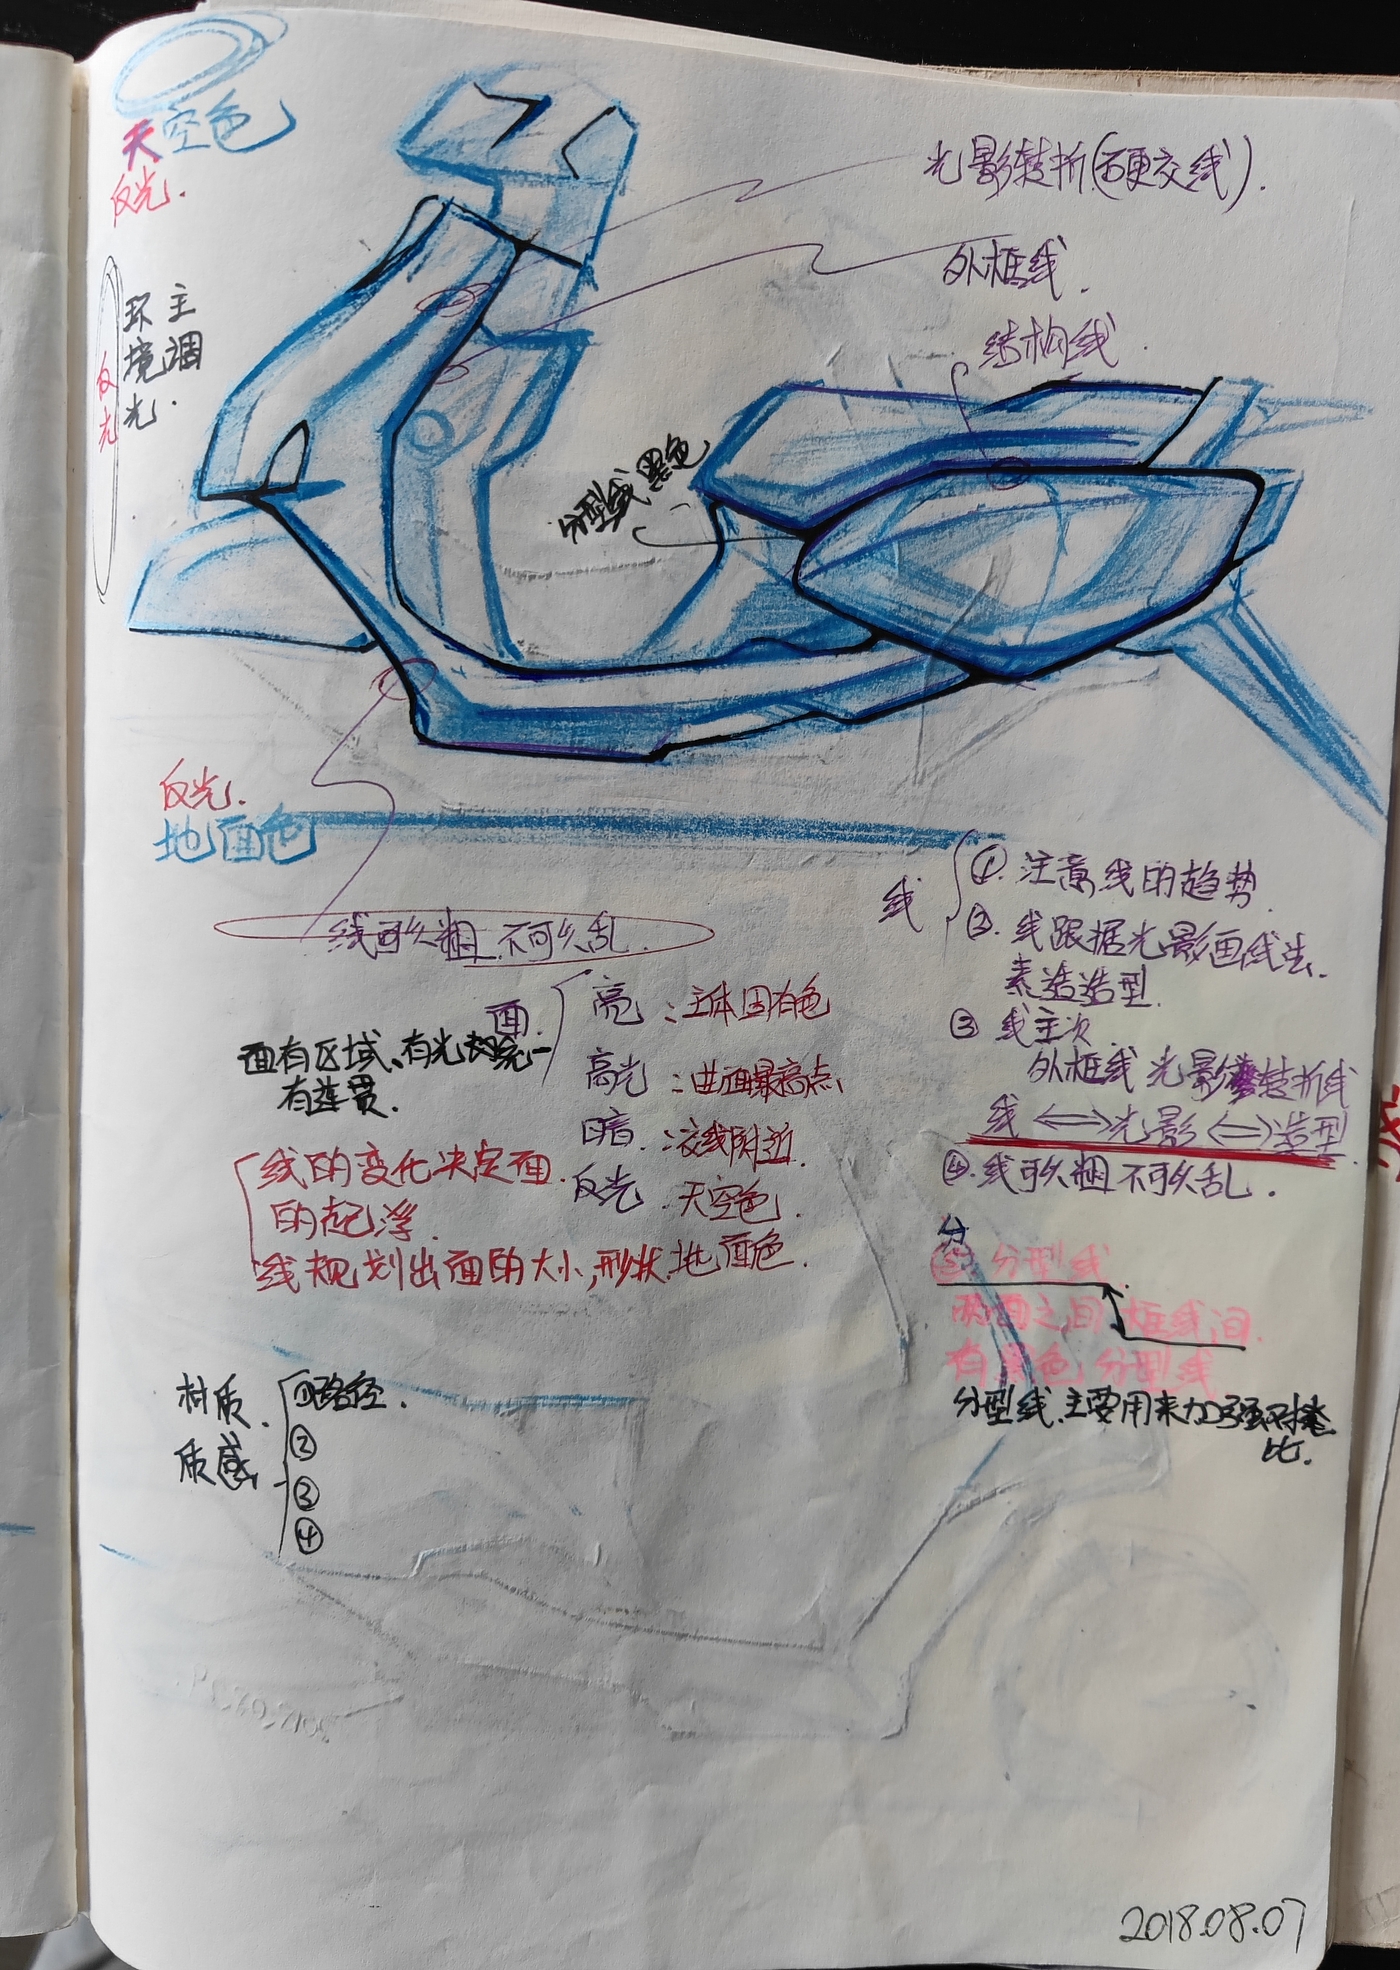 天空色
反光.
光影转折(硬交线).
外框线.
结构线
环境光
主调.
反光
分型线 黑色
反光.
地面色
线可以粗 不可以乱.
线
①. 注意线的趋势
②. 线跟据光影画线法.
素造造型.
③ 线主次
外框线 光影转折线
线 ⟺ 光影 ⟺ 造型.
④. 线可以粗 不可以乱.
面.
亮 : 主体固有色
高光 : 曲面最高点
暗 : 交线附近.
反光 . 天空色.
地面色.
面有区域、有光
有连贯.
线的变化决定面.
的起浮.
线规划出面的大小,形状.
分
⑤ 分型线
两面之间 框线间.
有黑色 分型线
分型线.主要用来加强对
比.
材质.
质感.
①路径.
②
③
④
2018.08.07